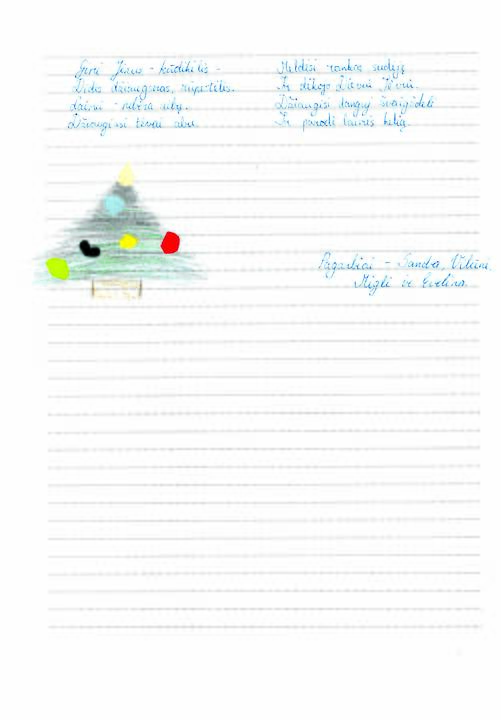 Jėzus - kūdikėlis -
Didis džiaugsmas, rūpestėlis.
Džiaugėsi tėvai abu.
Meldėsi rankas sudėję
Ir dėkojo Dievui Tėvui.
Džiaugėsi dangūj žvaigždelė
Ir parodė laimės kelią.
Pagarbiai - Sandra, Vilūnė
Miglė ir Evelina.